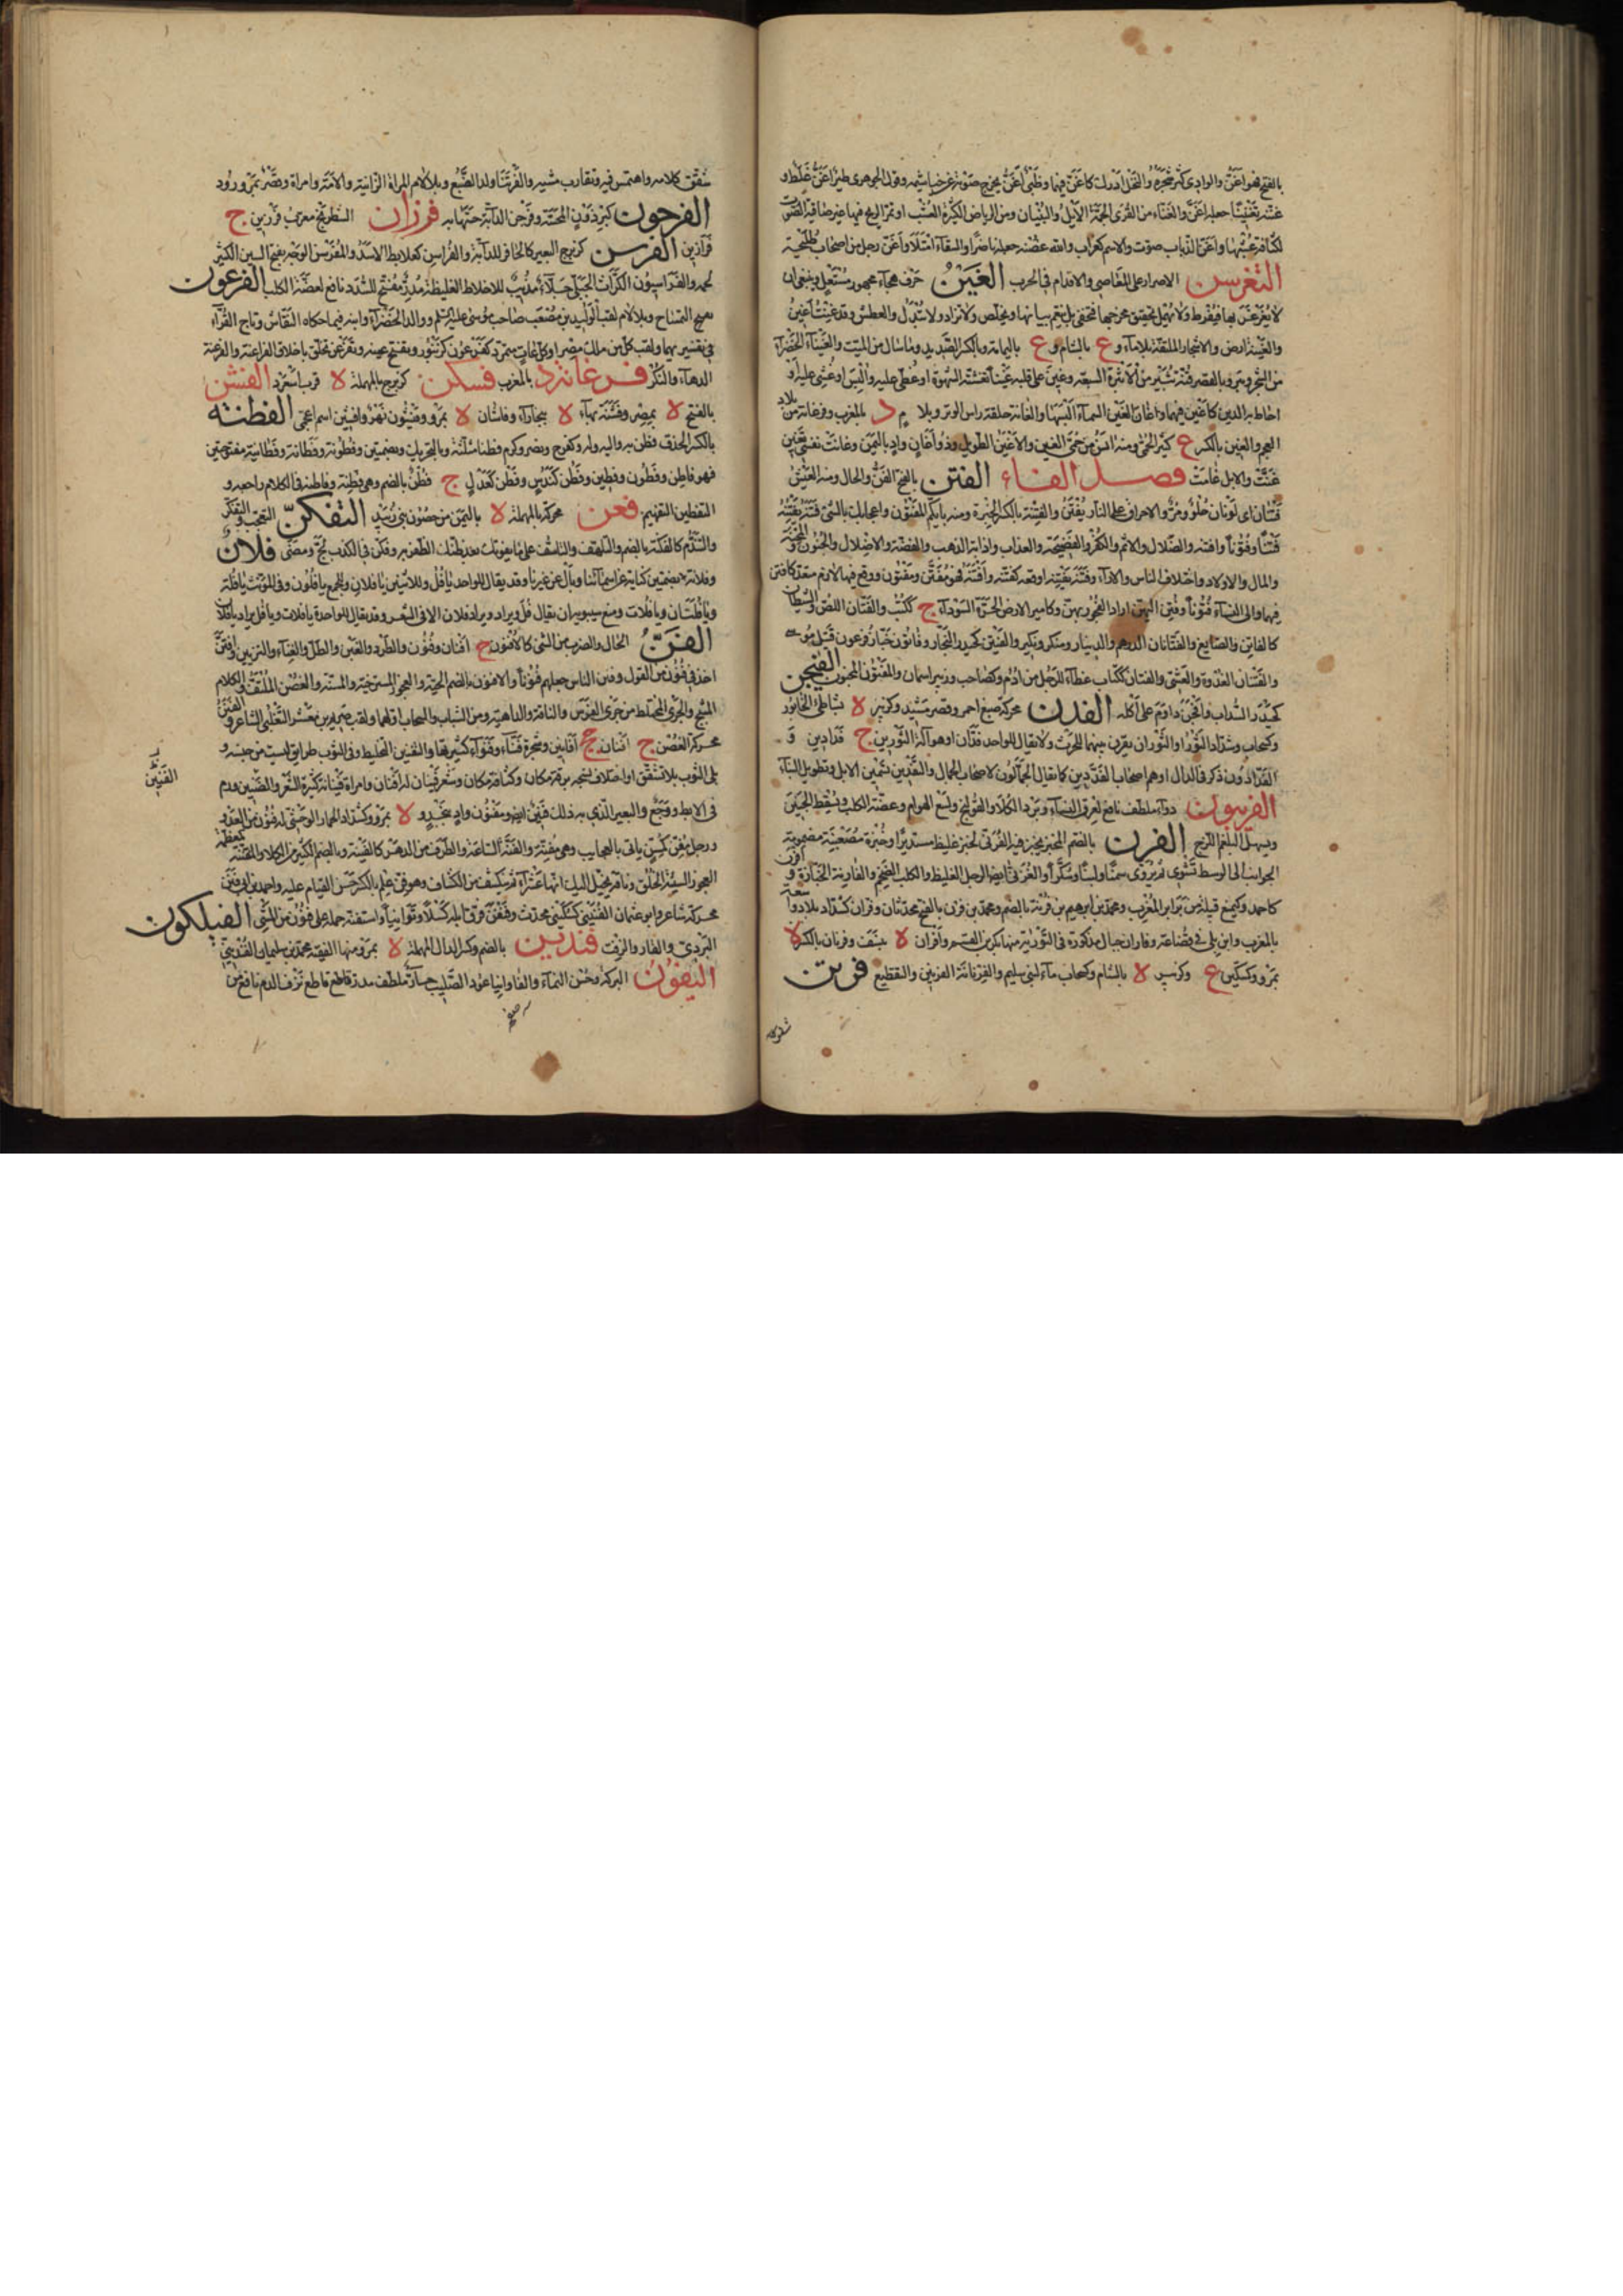 بالفتح فهو اغن والوادى كثر شجره والنخل ادرك كاغن فيهما وظبى اغن يخرج صوته من خياشيمه وقول الجوهرى طير اغن غلط و
غننه تغنينا جعله اغن والغناء من القرى الجمة الاهل والبنيان ومن الرياض الكثيرة العشب او تمر الريح فيها غير صافية الصوت
لكثافة عشبها واغن الذباب صوت والاسم كغراب والله غصنه جعله ناضرا والسقاء امتلأ واغن رجل من اصحاب طليحة
التغرسن الاصرار على المعاصى والاقدام فى الحرب الغين حرف هجاء مجهور مستعل وينبغى ان
لا يغرغر بها فيفرط ولا يهمل تحقيق مخرجها فتخفى بل ينعم بيانها ويخلص ولا تزاد ولا تبدل والعطش وقد غينت اغين
والغينة ارض والاشجار الملتفة بلا ماء و ع بالشام و ع باليمامة وبالكسر الصديد وما سال من الميت والغيناء الخضراء
من الشجر وبئر وبالقصر قنة ثبير من الاثبرة السبعة وغين على قلبه غينا تغشته الشهوة او غطى عليه والبس او غشى عليه او
احاط به الدين كاغين فيهما واغان الغين السماء البسها والغانة حلقة راس الوتر وبلا لام د بالمغرب وفرغانة من بلاد
العجم والغين بالكسر ع كثير الحمى ومنه امن من حمى الغين والاغين الطويل وذو اغان واد باليمن وغانت نفسى تغين
غثت والابل غامت فصل الفاء الفتن بالفتح الفن والحال ومنه العيش
فتنان اى لونان حلو ومر والاحراق على النار يفتنون والفتنة بالكسر الخبرة ومنه بايكم المفتون واعجابك بالشئ فتنه يفتنه
فتنا وفتونا وافتنه والضلال والاثم والكفر والفضيحة والعذاب واذابة الذهب والفضة والاضلال والجنون والمحنة
والمال والاولاد واختلاف الناس والاراء وفتنه يفتنه اوقعه كفتنه وافتنه فهو مفتن ومفتون ووقع فيها لازم متعد كافتتن
فيهما والى النساء فتونا وفتن اليهن اراد الفجور بهن وكامير الارض الحرة السوداء ج ككتب والفتان اللص والشيطان
كالفاتن والصايغ والفتانان الدرهم والدينار ومنكر ونكير والفيتن كحيدر النجار وفاتون خباز فرعون قتيل موسى
والفتنان الغدوة والعشى والفتان ككتاب غطاء للرحل من ادم وكصاحب وزبير اسمان والمفتون المجنون الفيجن
كحيدر السداب وافجن داوم على اكله الفدن محركة صبغ احمر وقصر مشيد وكزبير لا بشاطئ الخابور
وكسحاب وشداد الثور او الثوران يقرن بينهما للحرث ولا يقال للواحد فدان او هو آلة الثورين ج فدادين و
الفدادون ذكر فى الدال او هم اصحاب الفدادين كما يقال الجمالون لاصحاب الجمال والتفدين تسمين الابل وتطويل البناء
الفربيون دواء ملطف نافع لعرق النساء وبرد الكلا والقولنج ولسع الهوام وعضة الكلب ويسقط الجنين
ويسهل البلغم اللزج الفرن بالضم المخبز يخبز فيه الفرنى لخبز غليظ مستدير او خبزة مصعنبة مضمومة
الجوانب الى الوسط تشوى ثم تروى سمنا ولبنا وسكرا والفرنى ايضا الرجل الغليظ والكلب الضخم والفارنة الخبازة و
كاحمد وكيمنع قبيلة من برابر المغرب ومحمد بن ابرهيم بن فرنة بالضم ومحمد بن فرن بالفتح محدثان وفران كشداد بلاد واسعة
بالمغرب وابن بلى فى قضاعة وفاران جبال مذكورة فى التورية منها بكر بن القسم وافران لا بنسف وفرنان بالكسر لا
بمرو وكسكين ع وكزبير لا بالشام وكسحاب ماء لبنى سليم والفيزنانة الفرنين والتقطيع فرتن
شقق كلامه
شقق كلامه واهتمس فيه وتقارب مشيه والفرتنا ولد الضبع وبلا لام المراة الزانية والامة وامراة وقصر بمرو رود
الفرجون كبرذون المحسة وفرجن الدابة حسها به فرزان الشطرنج معرب فرزين ج
فرازين الفرسن كزبرج للبعير كالحافر للدابة والفراسن كعلابط الاسد والمفرسن الوجه بفتح السين الكثير
لحمه والفراسيون الكراث الجبلى جلاء مذيب للاخلاط الغليظة مدر مفتح للسدد نافع لعضة الكلب الفرعون
التمساح وبلا لام لقب الوليد بن مصعب صاحب موسى عليه السلم ووالد الخضر او ابنه فيما حكاه النقاش وتاج القراء
فى تفسيريهما ولقب كل من ملك مصر او كل عات متمرد كفرعون كزنبور وبفتح عينه وتفرعن تخلق باخلاق الفراعنة والفرعنة
الدهاء والنكر فرغانزد بالمغرب فسكن كزبرج بالمهملة لا قرب اسعرد الفشن
بالفتح لا بمصر وفشنة بهاء لا ببخاراء وفاشان لا بمرو وفشيون نهر وافشين اسم اعجمى الفطنة
بالكسر الحذق فطن به واليه وله كفرح ونصر وكرم فطنا مثلثة وبالتحريك وبضمتين وفطونة وفطانة وفطانية مفتوحتين
فهو فاطن وفطون وفطين وفطن كندس وفطن كعدل ج فطن بالضم وهى فطنة وفاطنه فى الكلام راجعه و
التفطين التفهيم فعن محركة بالمهملة لا باليمن من حصون بنى زبيد التفكن التعجب والتفكر
والتندم كالفكنة بالضم والتلهف والتاسف على ما يفوتك بعد ظنك الظفر به وفكن فى الكذب لج ومضى فلان
وفلانة بضمتين كناية عن اسمائنا وبأل عن غيرنا وقد يقال للواحد يا فل وللاثنين يا فلان وللجمع يا فلون وفى المؤنث يا فلة
ويا فلتان ويا فلات ومنع سيبويه ان يقال فل ويراد به فلان الا فى الشعر وقد يقال للواحدة يا فلات ويا فل يراد يا فلة
الفن الحال والضرب من الشئ كالافنون ج افنان وفنون والطرد والغبن والمطل والعناء والتزيين وافتن
اخذ فى فنون من القول وفنن الناس جعلهم فنونا والافنون بالضم الحية والعجوز المسترخية والمسنة والغصن الملتف والكلام
المثبج والجرى المختلط من جرى الفرس والناقة والداهية ومن الشباب والسحاب اولهما ولقب صريم بن معشر التغلبى الشاعر والفنن
محركة الغصن ج افنان جج افانين وشجرة فناء وفنواء كثيرتها والتفنين التخليط وفى الثوب طرايق ليست من جنسه و
بلى الثوب بلا تشقق او اختلاف نسجه برقة مكان وكثافة مكان وشعر فينان له افنان وامراة فينانة كثيرة الشعر والفنين ورم
الفنين
فى الابط ووجع والبعير الذى به ذلك فنين ايضا ومفنون وواد بنجد و لا بمرو وكشداد الحمار الوحشى له فنون من العدو
ورجل مفن كمسن ياتى بالعجايب وهى مفنة والفنة الساعة والطرف من الدهر كالفينة وبالضم الكثير من الكلاء والمفننة كمعظمة
العجوز السيئة الخلق وناقة يخيل اليك انها عشراء ثم تنكشف من الكشاف وهو فن علم بالكسر حسن القيام عليه واحمد بن ابى فنن
محركة شاعر وابو عثمان الفنينى كسكينى محدث وفنفن فرق ابله كسلا وتوانيا واستفنه حمله على فنون من المشى الفيلكون
البردى والقار والزفت فندين بالضم وكسر الدال المهملة لا بمرو منها الفقيه محمد بن سليمان الفندينى
البركة وحسن النماء والفاوانيا عود الصليب ملطف مدر قاطع نزف الدم نافع من